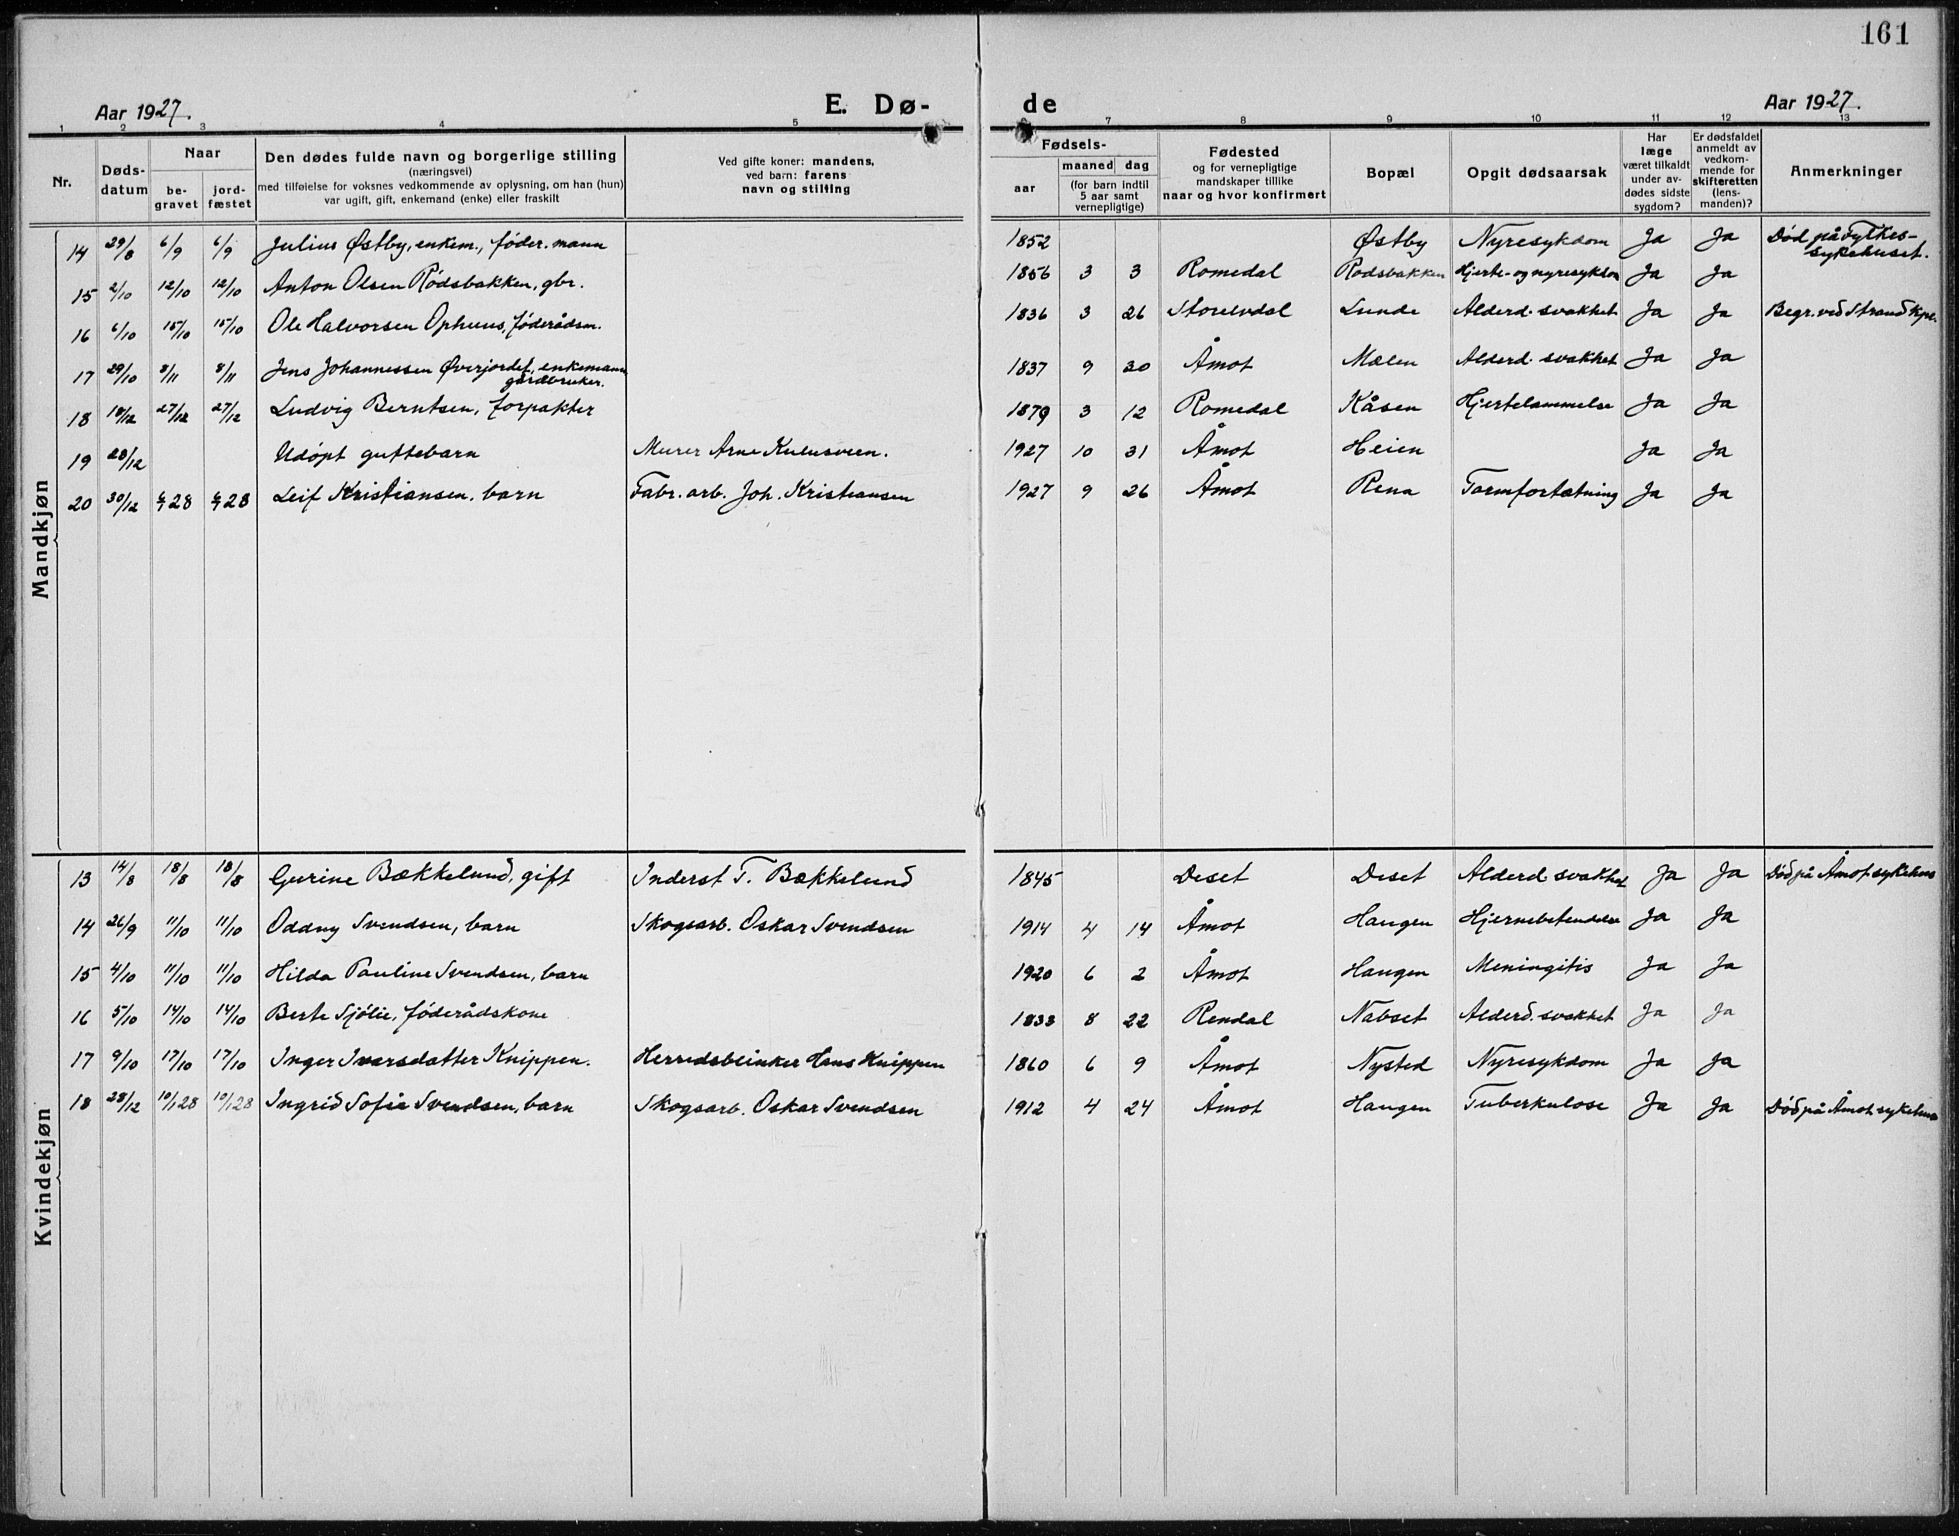 161
Aar 1927.
E. Dø-
de
Aar 1927.
1 2 3 4 5 6 7 8 9 10 11 12 13
Nr.
Døds-
datum
Naar
be-
gravet
jord-
fæstet
Den dødes fulde navn og borgerlige stilling
(næringsvei)
med tilføielse for voksnes vedkommende av oplysning, om han (hun)
var ugift, gift, enkemand (enke) eller fraskilt
Ved gifte koner: mandens,
ved barn: farens
navn og stilling
Fødsels-
aar
maaned dag
(for barn indtil
5 aar samt
vernepligtige)
Fødested
og for vernepligtige
mandskaper tillike
naar og hvor konfirmert
Bopæl
Opgit dødsaarsak
Har
læge
været tilkaldt
under av-
dødes sidste
sygdom?
Er dødsfaldet
anmeldt av
vedkom-
mende for
skifteretten
(lens-
manden)?
Anmerkninger
Mandkjøn
14 29/8 6/9 6/9 Julius Østby, enkem., føder. mann 1852 Østby Nyresykdom Ja Ja Død på Fylkes-
sykehuset.
15 2/10 12/10 12/10 Anton Olsen Rødsbakken, gbr. 1856 3 3 Romedal Rødsbakken Hjerte- og nyresykdom Ja Ja
16 6/10 15/10 15/10 Ole Halvorsen Ophuus, føderådsm. 1836 3 26 Storelvdal Lunde Alderd. svakhet Ja Ja Begr. ved Strand kpl.
17 29/10 8/11 8/11 Jens Johannessen Øverjordet, enkemann
gårdbruker. 1837 9 20 Åmot Mælen Alderd. svakhet Ja Ja
18 18/12 27/12 27/12 Ludvig Berntsen, forpakter 1879 3 12 Romedal Kåsen Hjertelammelse Ja Ja
19 28/12 Udøpt guttebarn Murer Arne Kulusveen. 1927 10 31 Åmot Heien Ja Ja
20 30/12 6/1 28 6/1 28 Leif Kristiansen, barn Fabr. arb. Joh. Kristiansen 1927 9 26 Åmot Rena Tarmfortætning Ja Ja
Kvindekjøn
13 14/8 18/8 18/8 Gurine Bækkelund, gift Inderst T. Bækkelund 1845 Deset Deset Alderd svakhet Ja Ja Død på Åmot sykehus
14 26/9 11/10 11/10 Oddny Svendsen, barn Skogsarb. Oskar Svendsen 1914 4 14 Åmot Haugen Hjernebetendelse Ja Ja
15 4/10 11/10 11/10 Hilda Pauline Svendsen, barn 1920 6 2 Åmot Haugen Meningitis Ja Ja
16 5/10 14/10 14/10 Berte Sjølie, føderådskone 1833 8 22 Rendal Nabset Alderd. svakhet Ja Ja
17 9/10 17/10 17/10 Inger Iversdatter Knippen. Herredsblinker Hans Knippen 1860 6 9 Åmot Nysted Nyresykdom Ja Ja
18 28/12 10/1 28 10/1 28 Ingrid Sofie Svendsen, barn Skogsarb. Oskar Svendsen 1912 4 24 Åmot Haugen Tuberkulose Ja Ja Død på Åmot sykehus